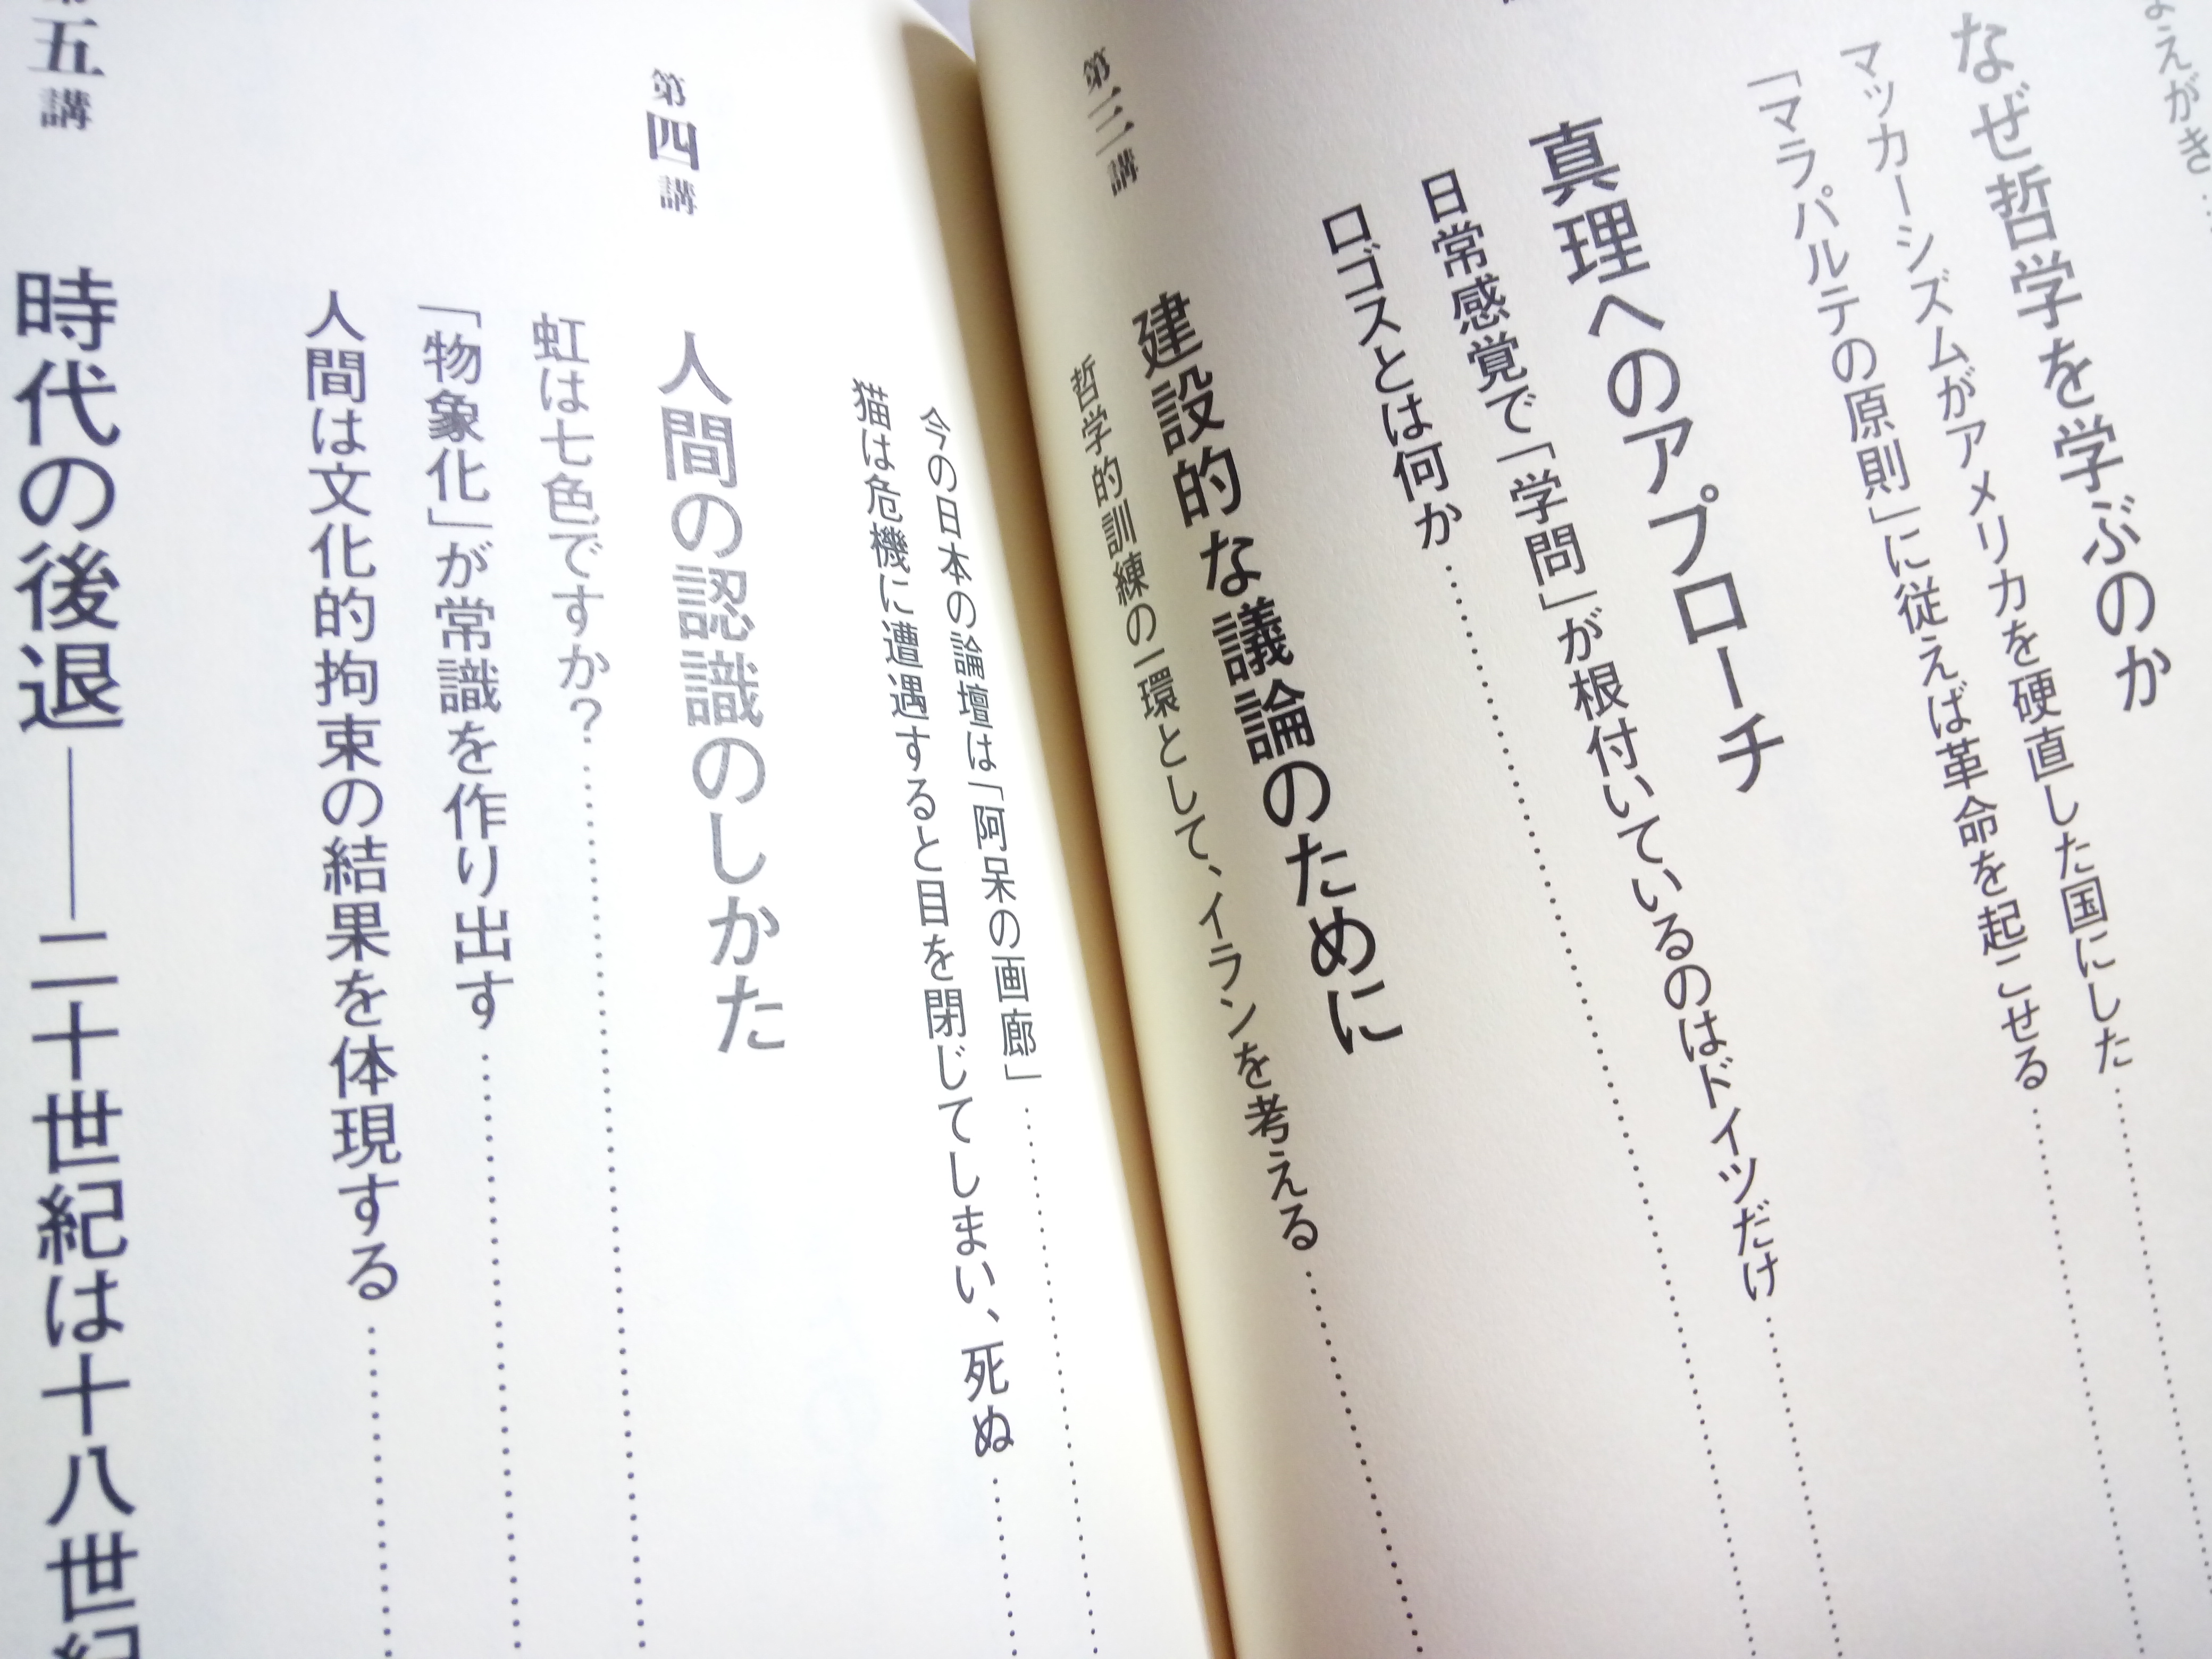 まえがき…
なぜ哲学を学ぶのか
マッカーシズムがアメリカを硬直した国にした
「マラパルテの原則」に従えば革命を起こせる
真理へのアプローチ
日常感覚で「学問」が根付いているのはドイツだけ
ロゴスとは何か
第三講
建設的な議論のために
哲学的訓練の一環として、イランを考える
今の日本の論壇は「阿呆の画廊」
猫は危機に遭遇すると目を閉じてしまい、死ぬ
第四講
人間の認識のしかた
虹は七色ですか?
「物象化」が常識を作り出す
人間は文化的拘束の結果を体現する
第五講
時代の後退――二十世紀は十八世紀